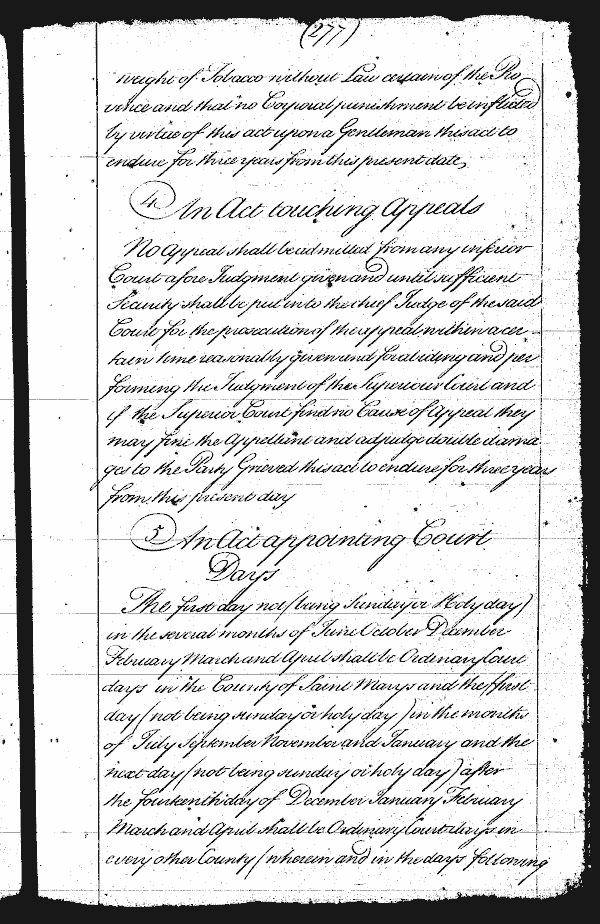 (277)
weight of Tobacco without Law certain of the Pro
vince and that no Corporal punishment be inflicted
by virtue of this act upon a Gentleman this act to
endure for three years from this present date,
4 An Act touching Appeals
No Appeal shall be admitted from any inferior
Court afore Judgment given and until sufficient
Security shall be put in to the chief Judge of the said
Court for the prosecution of the appeal within a cer-
tain time reasonably given and for abiding and per
forming the Judgment of the Superiour Court and
if the Superior Court find no Cause of Appeal they
may fine the Appellant and adjudge double dama
ges to the Party Grieved this act to endure for three years
from this present day
5 An Act appointing Court
Days
The first day not (being Sunday or Holy day)
in the several months of June October December
February March and April shall be Ordinary Court
days in the County of Saint Marys and the first
day (not being sunday or holy day) in the months
of July September November and January and the
next day (not being sunday or holy day) after
the fourteenth day of December January February
March and April shall be Ordinary Court days in
every other County (wherein and in the days following